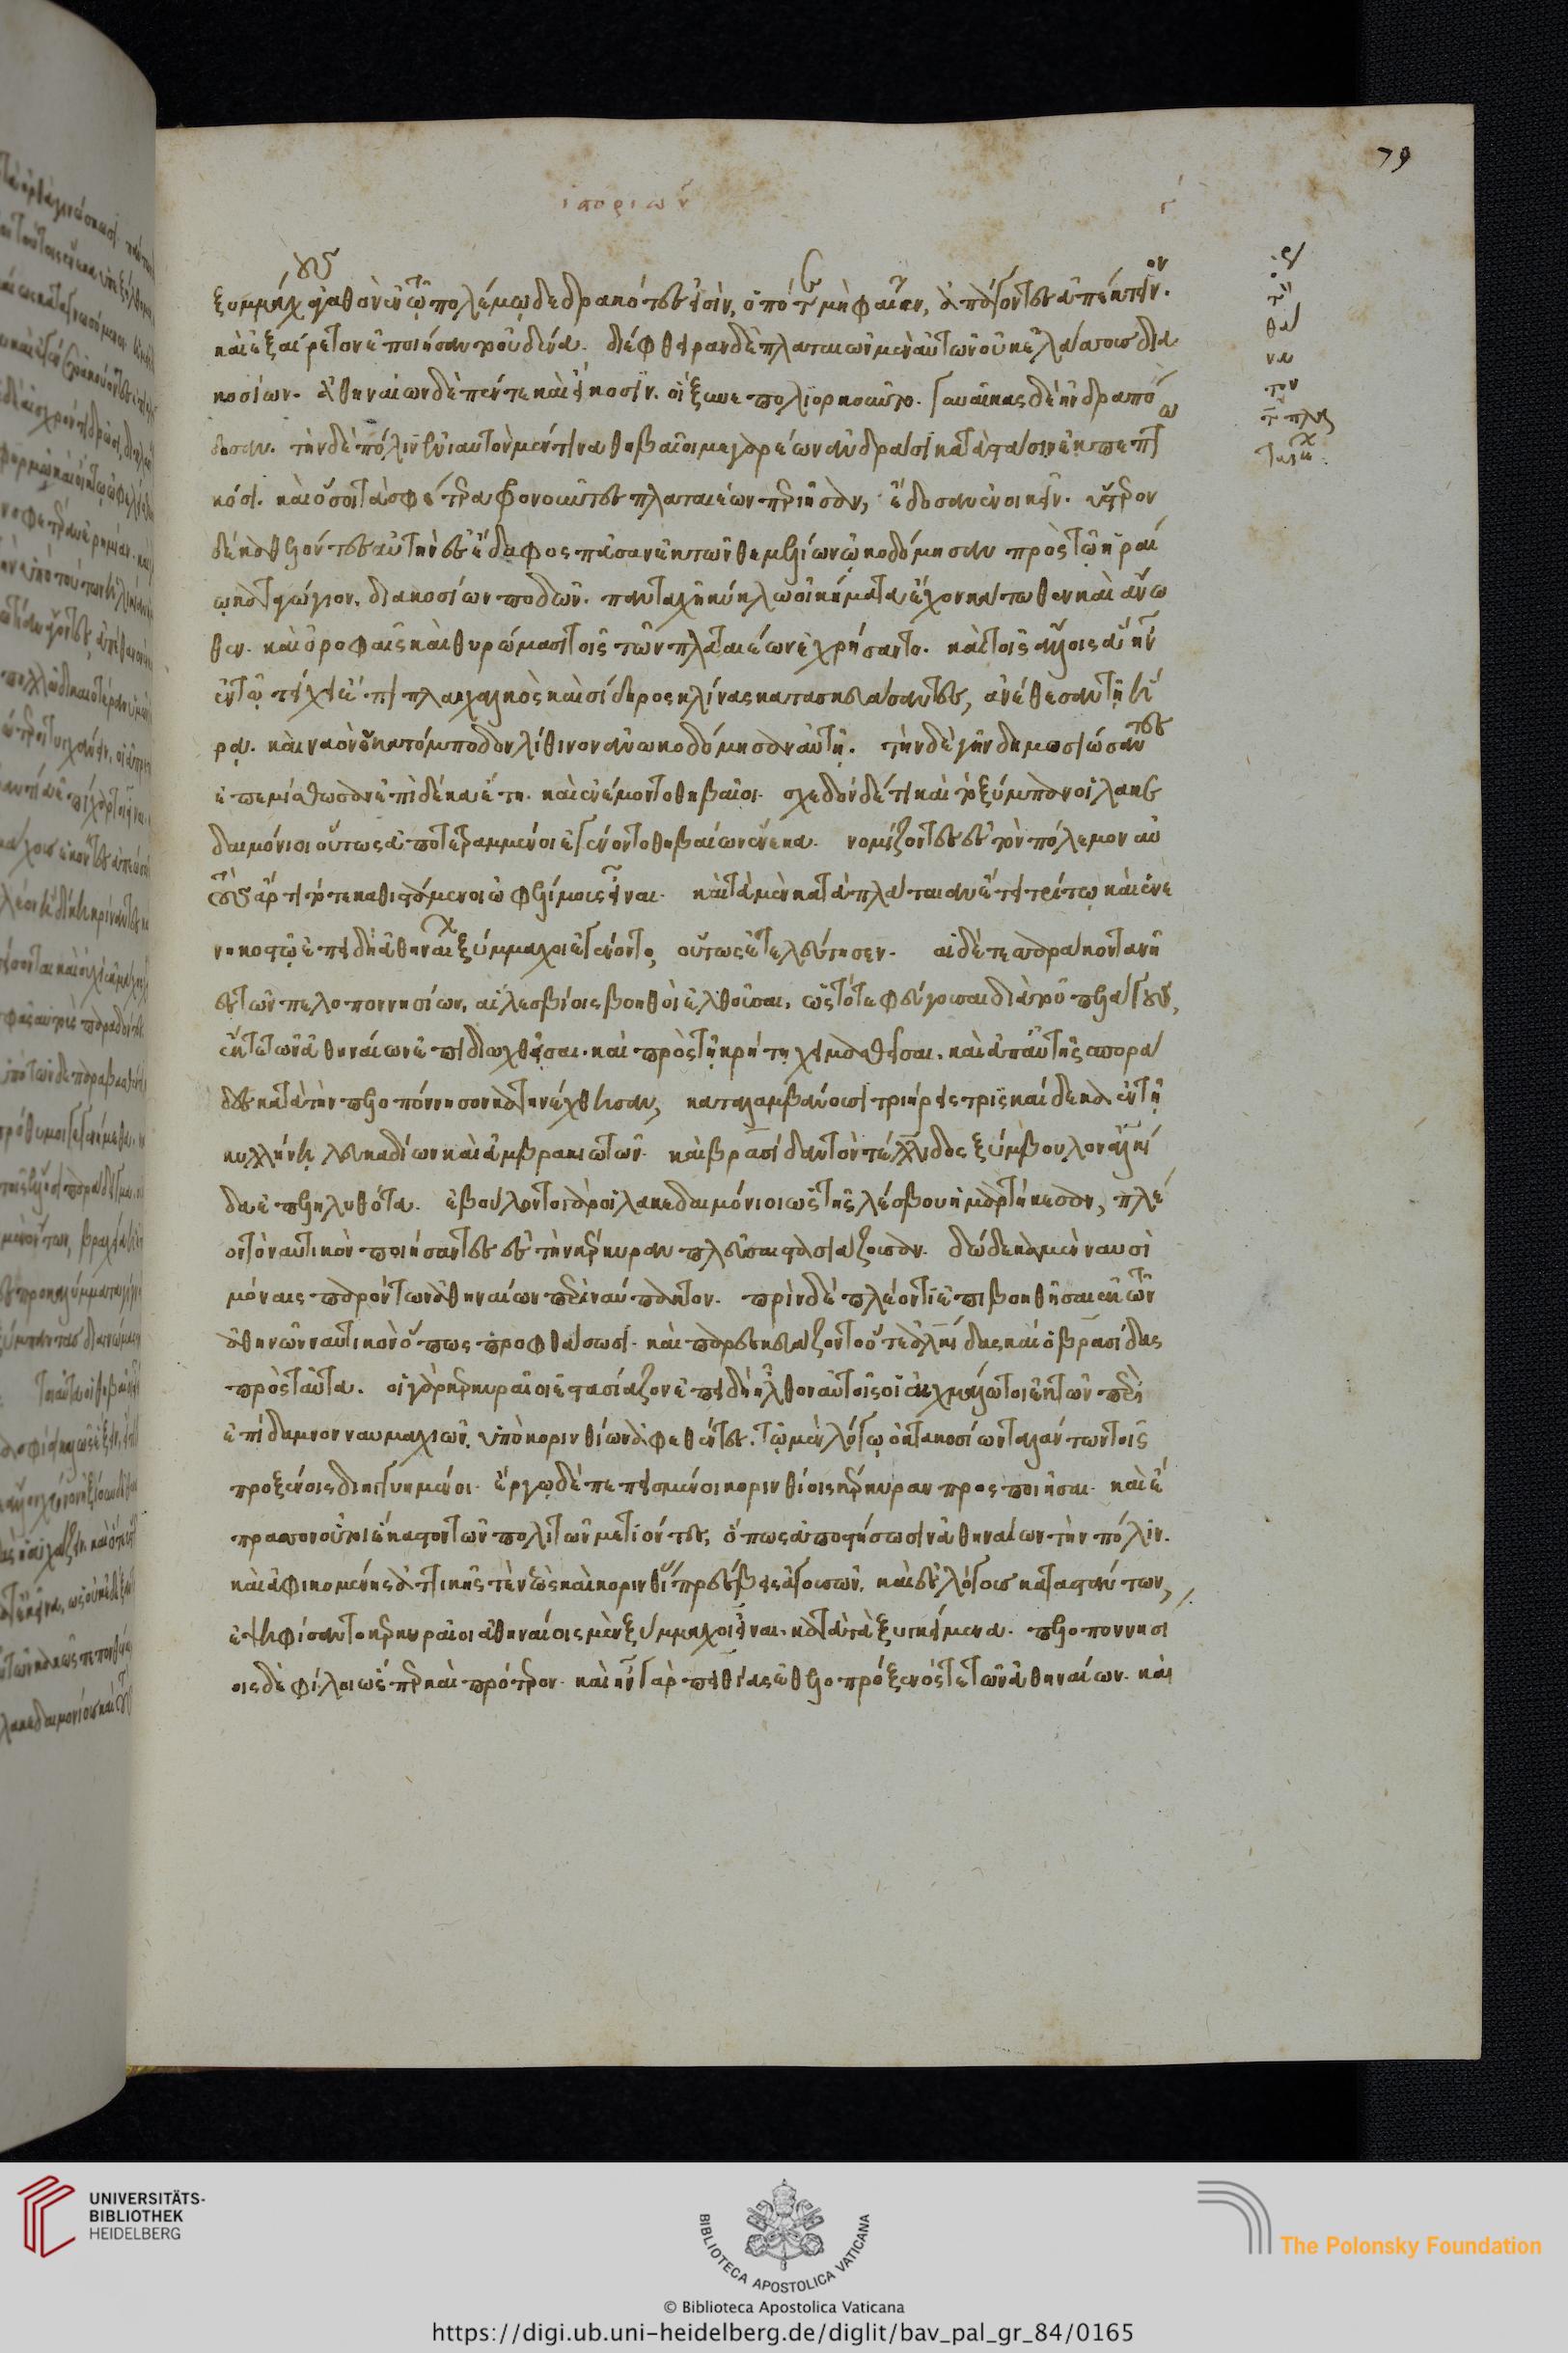 ἱστοριῶν γ
79
ξυμμάχους ἀγαθὸν ἐν τῷ πολέμῳ δεδρακότες εἰσὶν, ὁπότε μὴ φαῖεν, ἀπάγοντες ἀπέκτεινον.
καὶ ἐξαίρετον ἐποιήσαντο οὐδένα. διέφθειραν δὲ πλαταιῶν μὲν αὐτῶν οὐκ ἐλάσσους δια
κοσίων. ἀθηναίων δὲ πέντε καὶ εἴκοσιν. οἳ ξυνεπολιορκοῦντο. γυναῖκας δὲ ἠνδραπό
δισαν. τὴν δὲ πόλιν ἐνιαυτὸν μέν τινα θηβαῖοι μεγαρέων ἀνδράσι κατὰ στάσιν ἐκπεπτω
κόσι. καὶ ὅσοι τὰ σφέτερα φρονοῦντες πλαταιέων περιῆσαν, ἔδοσαν ἐνοικεῖν. ὕστερον
δὲ καθελόντες αὐτὴν ἐς ἔδαφος πᾶσαν ἐκ τῶν θεμελίων ᾠκοδόμησαν πρὸς τῷ ἡραί
ῳ καταγώγιον. διακοσίων ποδῶν. πανταχῇ κύκλῳ οἰκήματα ἔχον κάτωθεν καὶ ἄνω
θεν. καὶ ὀροφαῖς καὶ θυρώμασι τοῖς τῶν πλαταιέων ἐχρήσαντο. καὶ τοῖς ἄλλοις ἃ ἦν
ἐν τῷ τείχει ἔπιπλα χαλκὸς καὶ σίδηρος κλίνας κατασκευάσαντες, ἀνέθεσαν τῇ ἥ
ρᾳ. καὶ ναὸν ἑκατόμποδον λίθινον ἀνῳκοδόμησαν αὐτῇ. τὴν δὲ γῆν δημοσιώσαντες
ἐπεμίσθωσαν ἐπὶ δέκα ἔτη. καὶ ἐνέμοντο θηβαῖοι. σχεδὸν δέ τι καὶ τὸ ξύμπαν οἱ λακε
δαιμόνιοι οὕτως ἀποτετραμμένοι ἐγένοντο θηβαίων ἕνεκα. νομίζοντες ἐς τὸν πόλεμον αὐ
τοὺς ἄρτι τότε καθιστάμενοι ὠφελίμους εἶναι. καὶ τὰ μὲν κατὰ πλάταιαν ἔτει τρίτῳ καὶ ἐνε
νηκοστῷ ἐπειδὴ ἀθηναίων ξύμμαχοι ἐγένοντο, οὕτως ἐτελεύτησεν. αἱ δὲ τεσσαράκοντα νῆ
ες τῶν πελοποννησίων, αἱ λεσβίοις βοηθοὶ ἐλθοῦσαι, ὡς τότε φεύγουσαι διὰ τοῦ πελάγους,
ἔκ τε τῶν ἀθηναίων ἐπιδιωχθεῖσαι. καὶ πρὸς τῇ κρήτῃ χειμασθεῖσαι. καὶ ἀπ' αὐτῆς σπορά
δες κατὰ τὴν πελοπόννησον κατηνέχθησαν, καταλαμβάνουσι τριήρεις τρισκαίδεκα ἐν τῇ
κυλλήνῃ λευκαδίων καὶ ἀμβρακιωτῶν. καὶ βρασίδαν τὸν τέλλιδος ξύμβουλον ἀλκί
δα ἐπεληλυθότα. ἐβούλοντο γὰρ οἱ λακεδαιμόνιοι ὡς τῆς λέσβου ἡμαρτήκεσαν, πλέ
ον τὸ ναυτικὸν ποιήσαντες ἐς τὴν κέρκυραν πλεῦσαι στασιάζουσαν. δώδεκα μὲν ναυσὶ
μόναις παρόντων ἀθηναίων περὶ ναύπακτον. πρὶν δὲ πλέον τι ἐπιβοηθῆσαι ἐκ τῶν
ἀθηνῶν ναυτικὸν ὅπως προφθάσωσι. καὶ παρεσκευάζοντο ὅ τε ἀλκίδας καὶ ὁ βρασίδας
πρὸς ταῦτα. οἱ γὰρ κερκυραῖοι ἐστασίαζον ἐπειδὴ ἦλθον αὐτοῖς οἱ αἰχμάλωτοι ἐκ τῶν περὶ
ἐπίδαμνον ναυμαχιῶν. ὑπὸ κορινθίων ἀφεθέντες. τῷ μὲν λόγῳ ὀκτακοσίων ταλάντων τοῖς
προξένοις διηγγυημένοι. ἔργῳ δὲ πεπεισμένοι κορινθίοις κέρκυραν προσποιῆσαι. καὶ ἔ
πρασσον οὗτοι ἕκαστον τῶν πολιτῶν μετιόντες, ὅπως ἀποστήσωσιν ἀθηναίων τὴν πόλιν.
καὶ ἀφικομένης ἀττικῆς τε νεὼς καὶ κορινθίας πρέσβεις ἀγουσῶν. καὶ ἐς λόγους καταστάντων,
ἐψηφίσαντο κερκυραῖοι ἀθηναίοις μὲν ξύμμαχοι εἶναι. κατὰ τὰ ξυγκείμενα. πελοποννησί
οις δὲ φίλοι ὥσπερ καὶ πρότερον. καὶ ἦν γὰρ πειθίας ἐθελοπρόξενός τε τῶν ἀθηναίων. καὶ
UNIVERSITÄTS-
BIBLIOTHEK
HEIDELBERG
BIBLIOTECA APOSTOLICA VATICANA
The Polonsky Foundation
© Biblioteca Apostolica Vaticana
https://digi.ub.uni-heidelberg.de/diglit/bav_pal_gr_84/0165